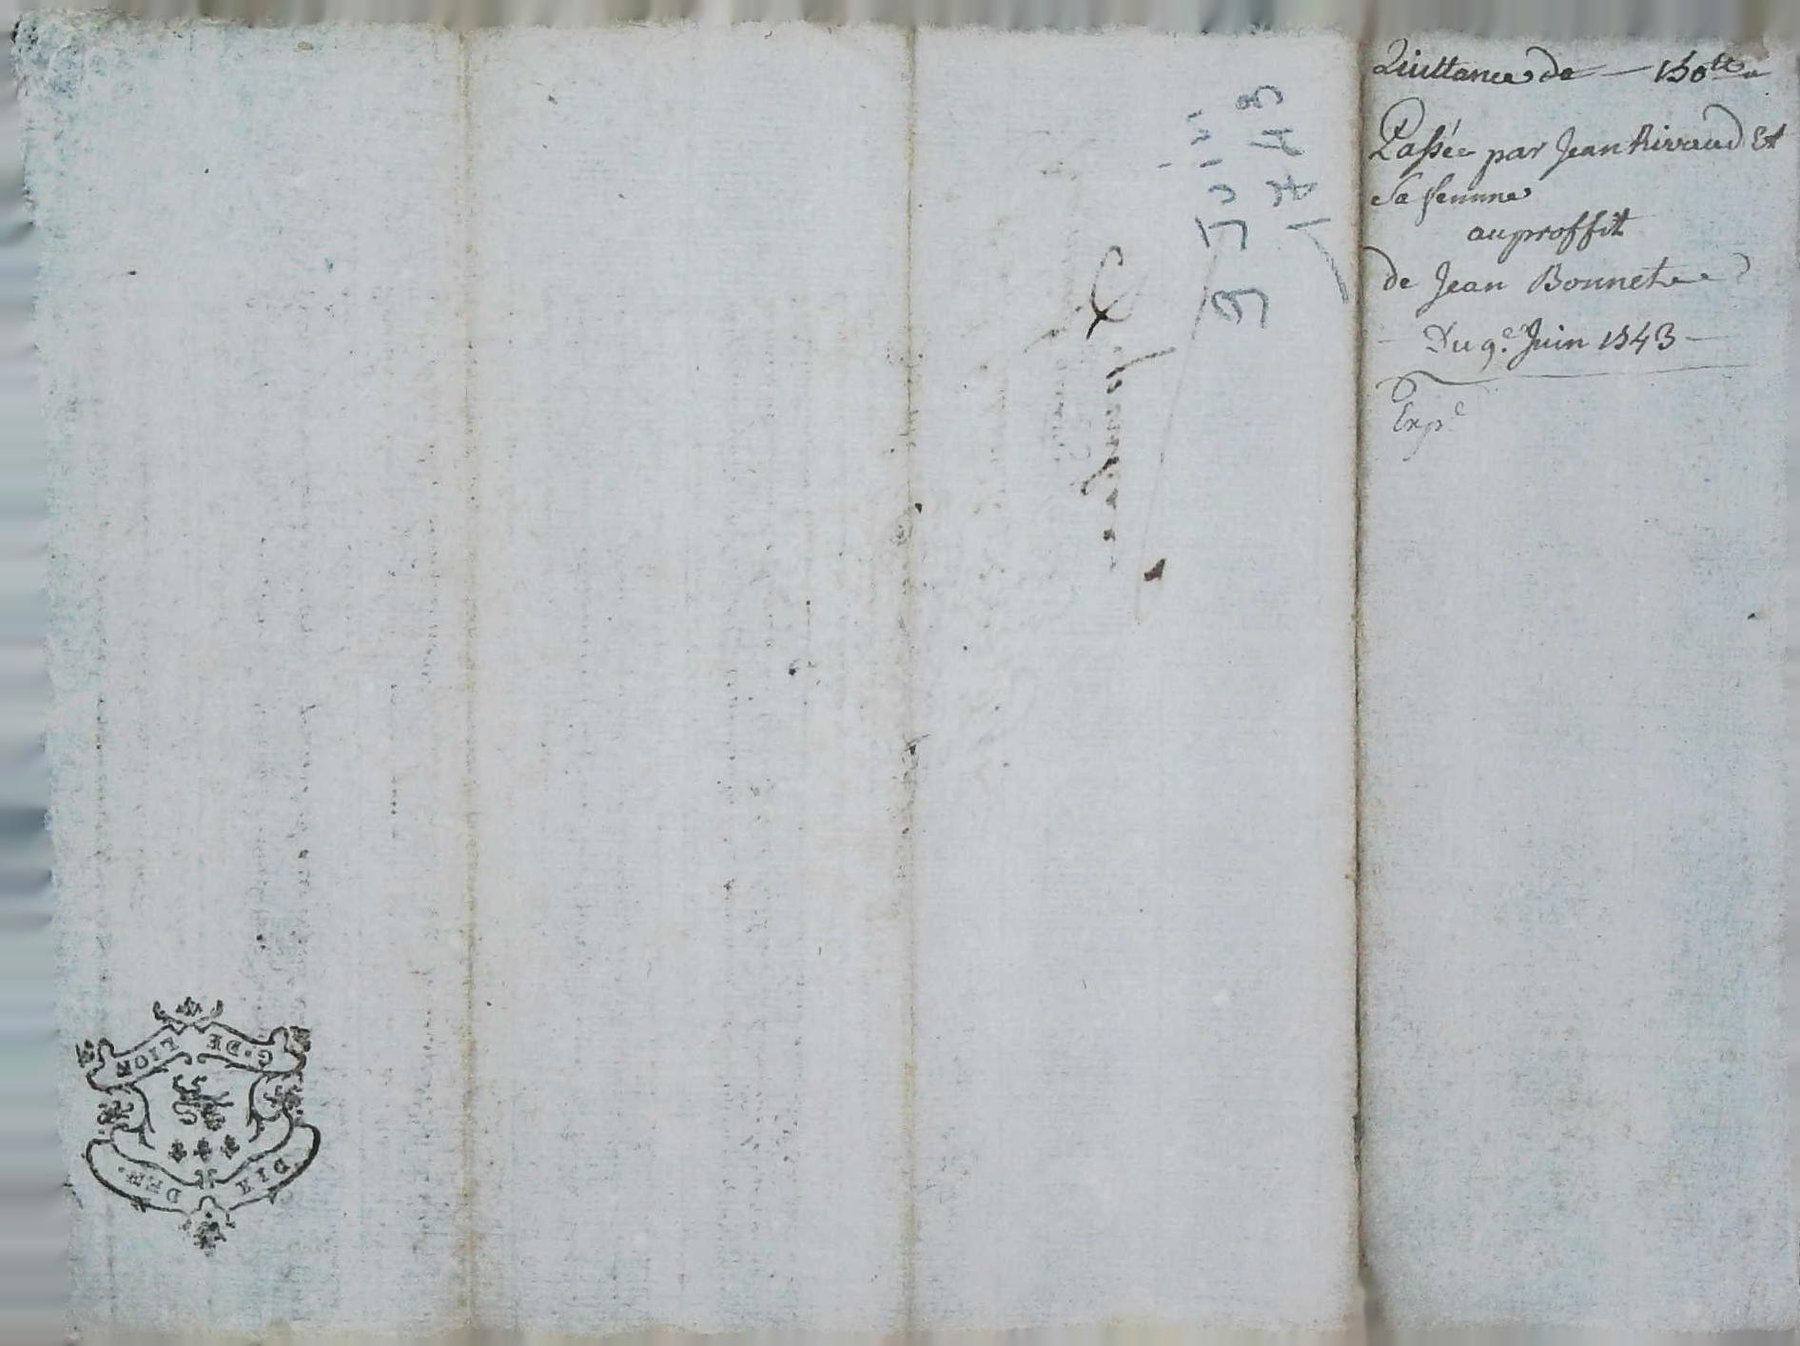 Quittance de — 150ᵗᵗ
Passée par Jean Rivraud Et
Sa femme
au proffit
de Jean Bonnet
Du 9.ᵉ Juin 1743
Expᵉ
9 Juin
1743
G. DE LION
DIX DEN.